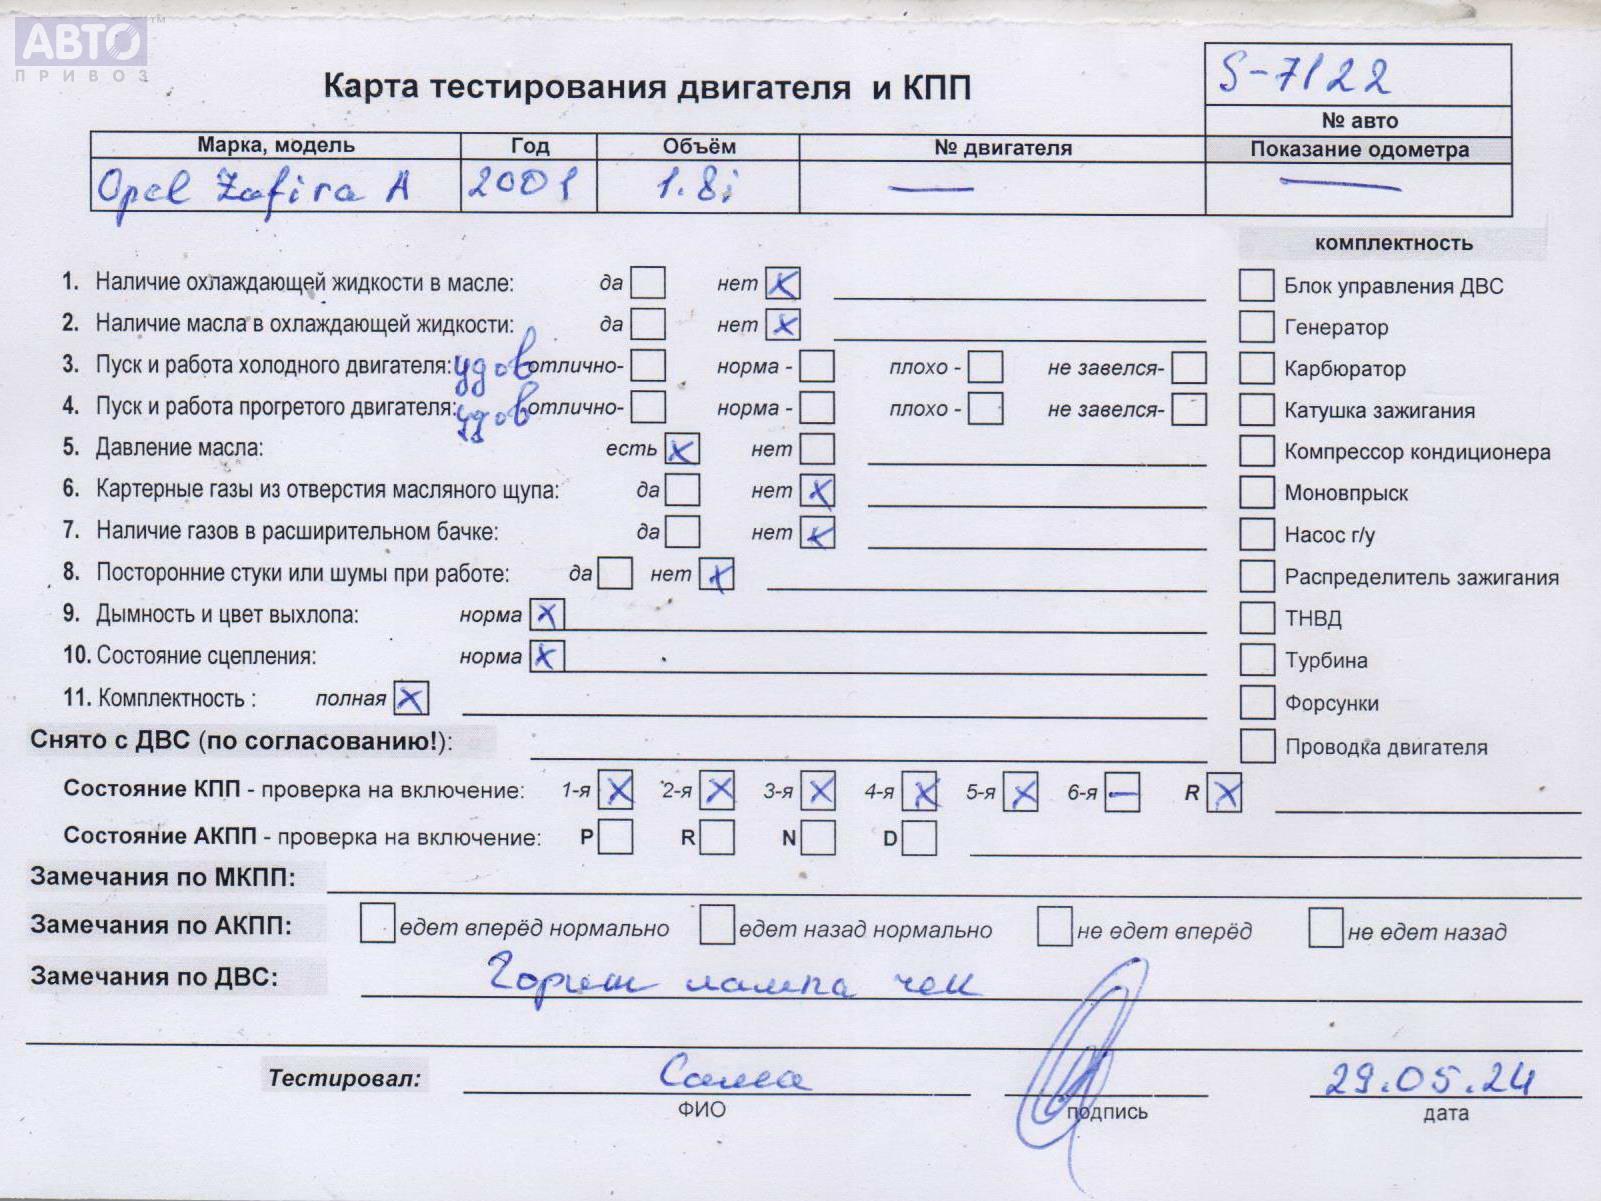 АВТО ™
ПРИВОЗ
S-7122
Карта тестирования двигателя и КПП
№ авто
Марка, модель Год Объём № двигателя Показание одометра
Opel Zafira A 2001 1.8i — —
комплектность
1. Наличие охлаждающей жидкости в масле: да нет X Блок управления ДВС
2. Наличие масла в охлаждающей жидкости: да нет X Генератор
3. Пуск и работа холодного двигателя: удов отлично- норма - плохо - не завелся- Карбюратор
4. Пуск и работа прогретого двигателя: удов отлично- норма - плохо - не завелся- Катушка зажигания
5. Давление масла: есть X нет Компрессор кондиционера
6. Картерные газы из отверстия масляного щупа: да нет X Моновпрыск
7. Наличие газов в расширительном бачке: да нет X Насос г/у
8. Посторонние стуки или шумы при работе: да нет X Распределитель зажигания
9. Дымность и цвет выхлопа: норма X ТНВД
10. Состояние сцепления: норма X Турбина
11. Комплектность : полная X Форсунки
Снято с ДВС (по согласованию!): Проводка двигателя
Состояние КПП - проверка на включение: 1-я X 2-я X 3-я X 4-я X 5-я X 6-я — R X
Состояние АКПП - проверка на включение: P R N D
Замечания по МКПП:
Замечания по АКПП: едет вперёд нормально едет назад нормально не едет вперёд не едет назад
Замечания по ДВС: Горит лампа чек
Тестировал: 29.05.24
ФИО подпись дата